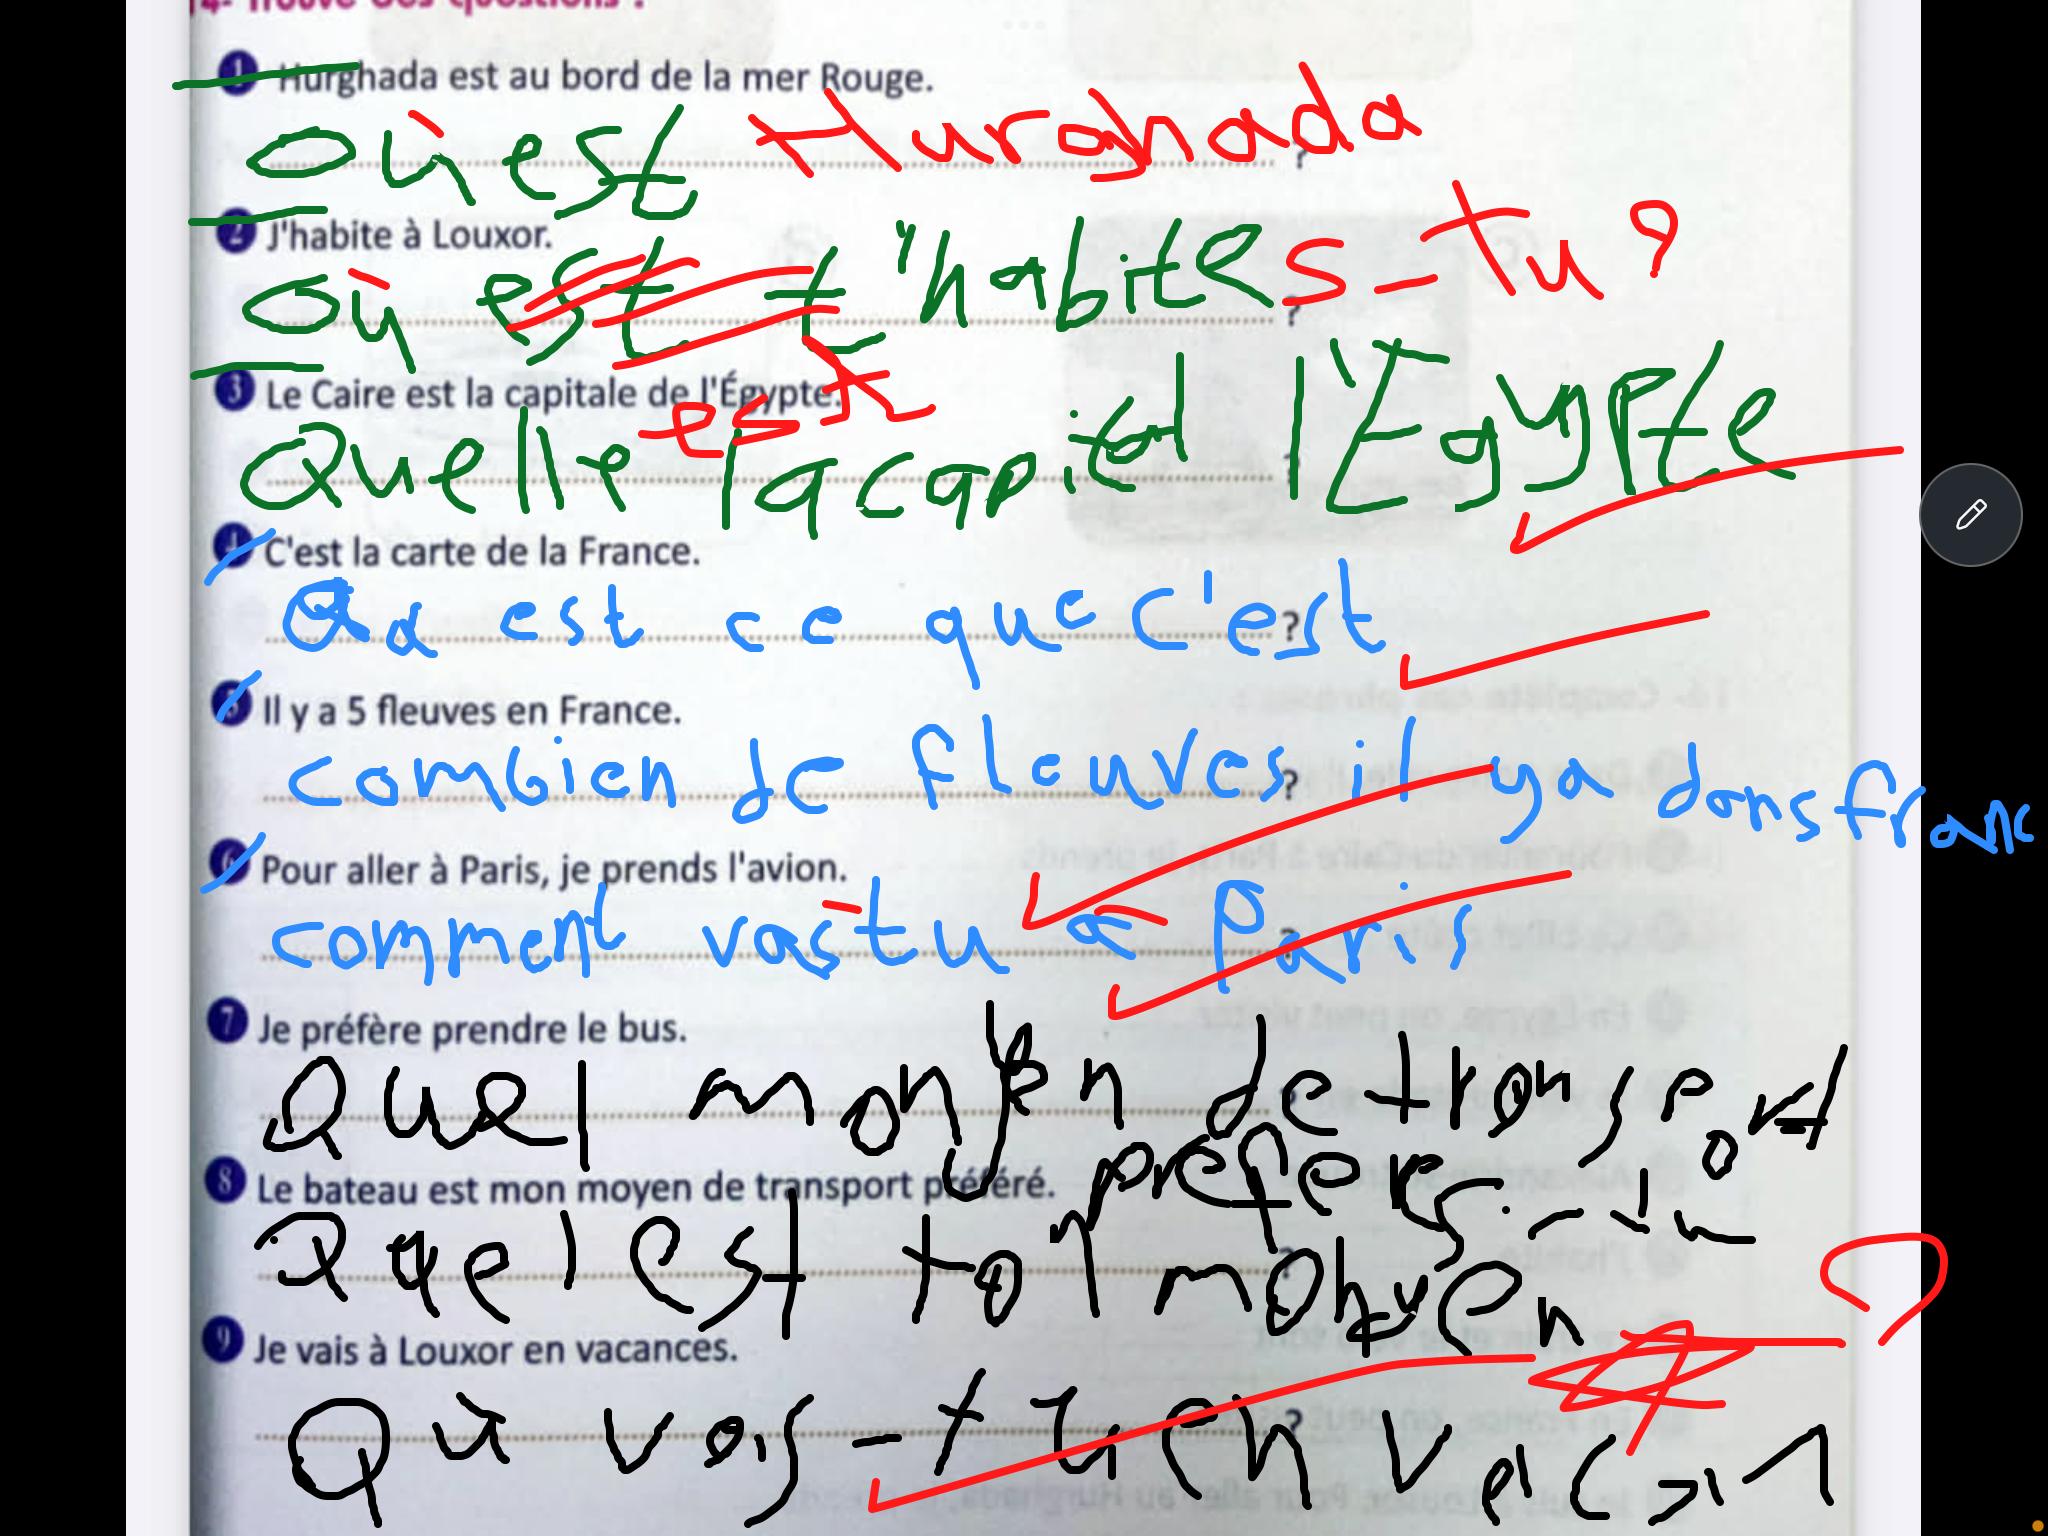 14- Trouve des questions :
1 Hurghada est au bord de la mer Rouge.
Où est Hurghada ?
2 J'habite à Louxor.
Où est t 'habites-tu ?
?
3 Le Caire est la capitale de l'Égypte.
Quelle est la capital l'Egypte
?
4 C'est la carte de la France.
est ce que c'est ?
5 Il y a 5 fleuves en France.
combien de fleuves ? il y a dans franc
6 Pour aller à Paris, je prends l'avion.
comment vas-tu à Paris ?
7 Je préfère prendre le bus.
Quel monyen de transport ?
prefers-tu
8 Le bateau est mon moyen de transport préféré.
Quel est ton ?
9 Je vais à Louxor en vacances.
Qù vas-tu en ?